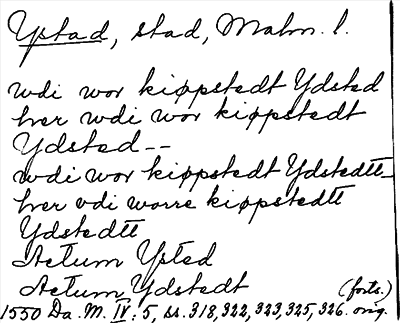 Ystad, stad, Malm. l.
wdi wor kiøpstedt Ydsted
her wdi wor kiøppstedt
Ydsted--
wdi wor kiøppstedt Ydstedtt
her vdi worre kiøpstedtt
Ydstedtt
Actum Ysted
Actum Ydstedt (forts.)
1550 Da. M. IV: 5, ss. 318, 322, 323, 325, 326. orig.